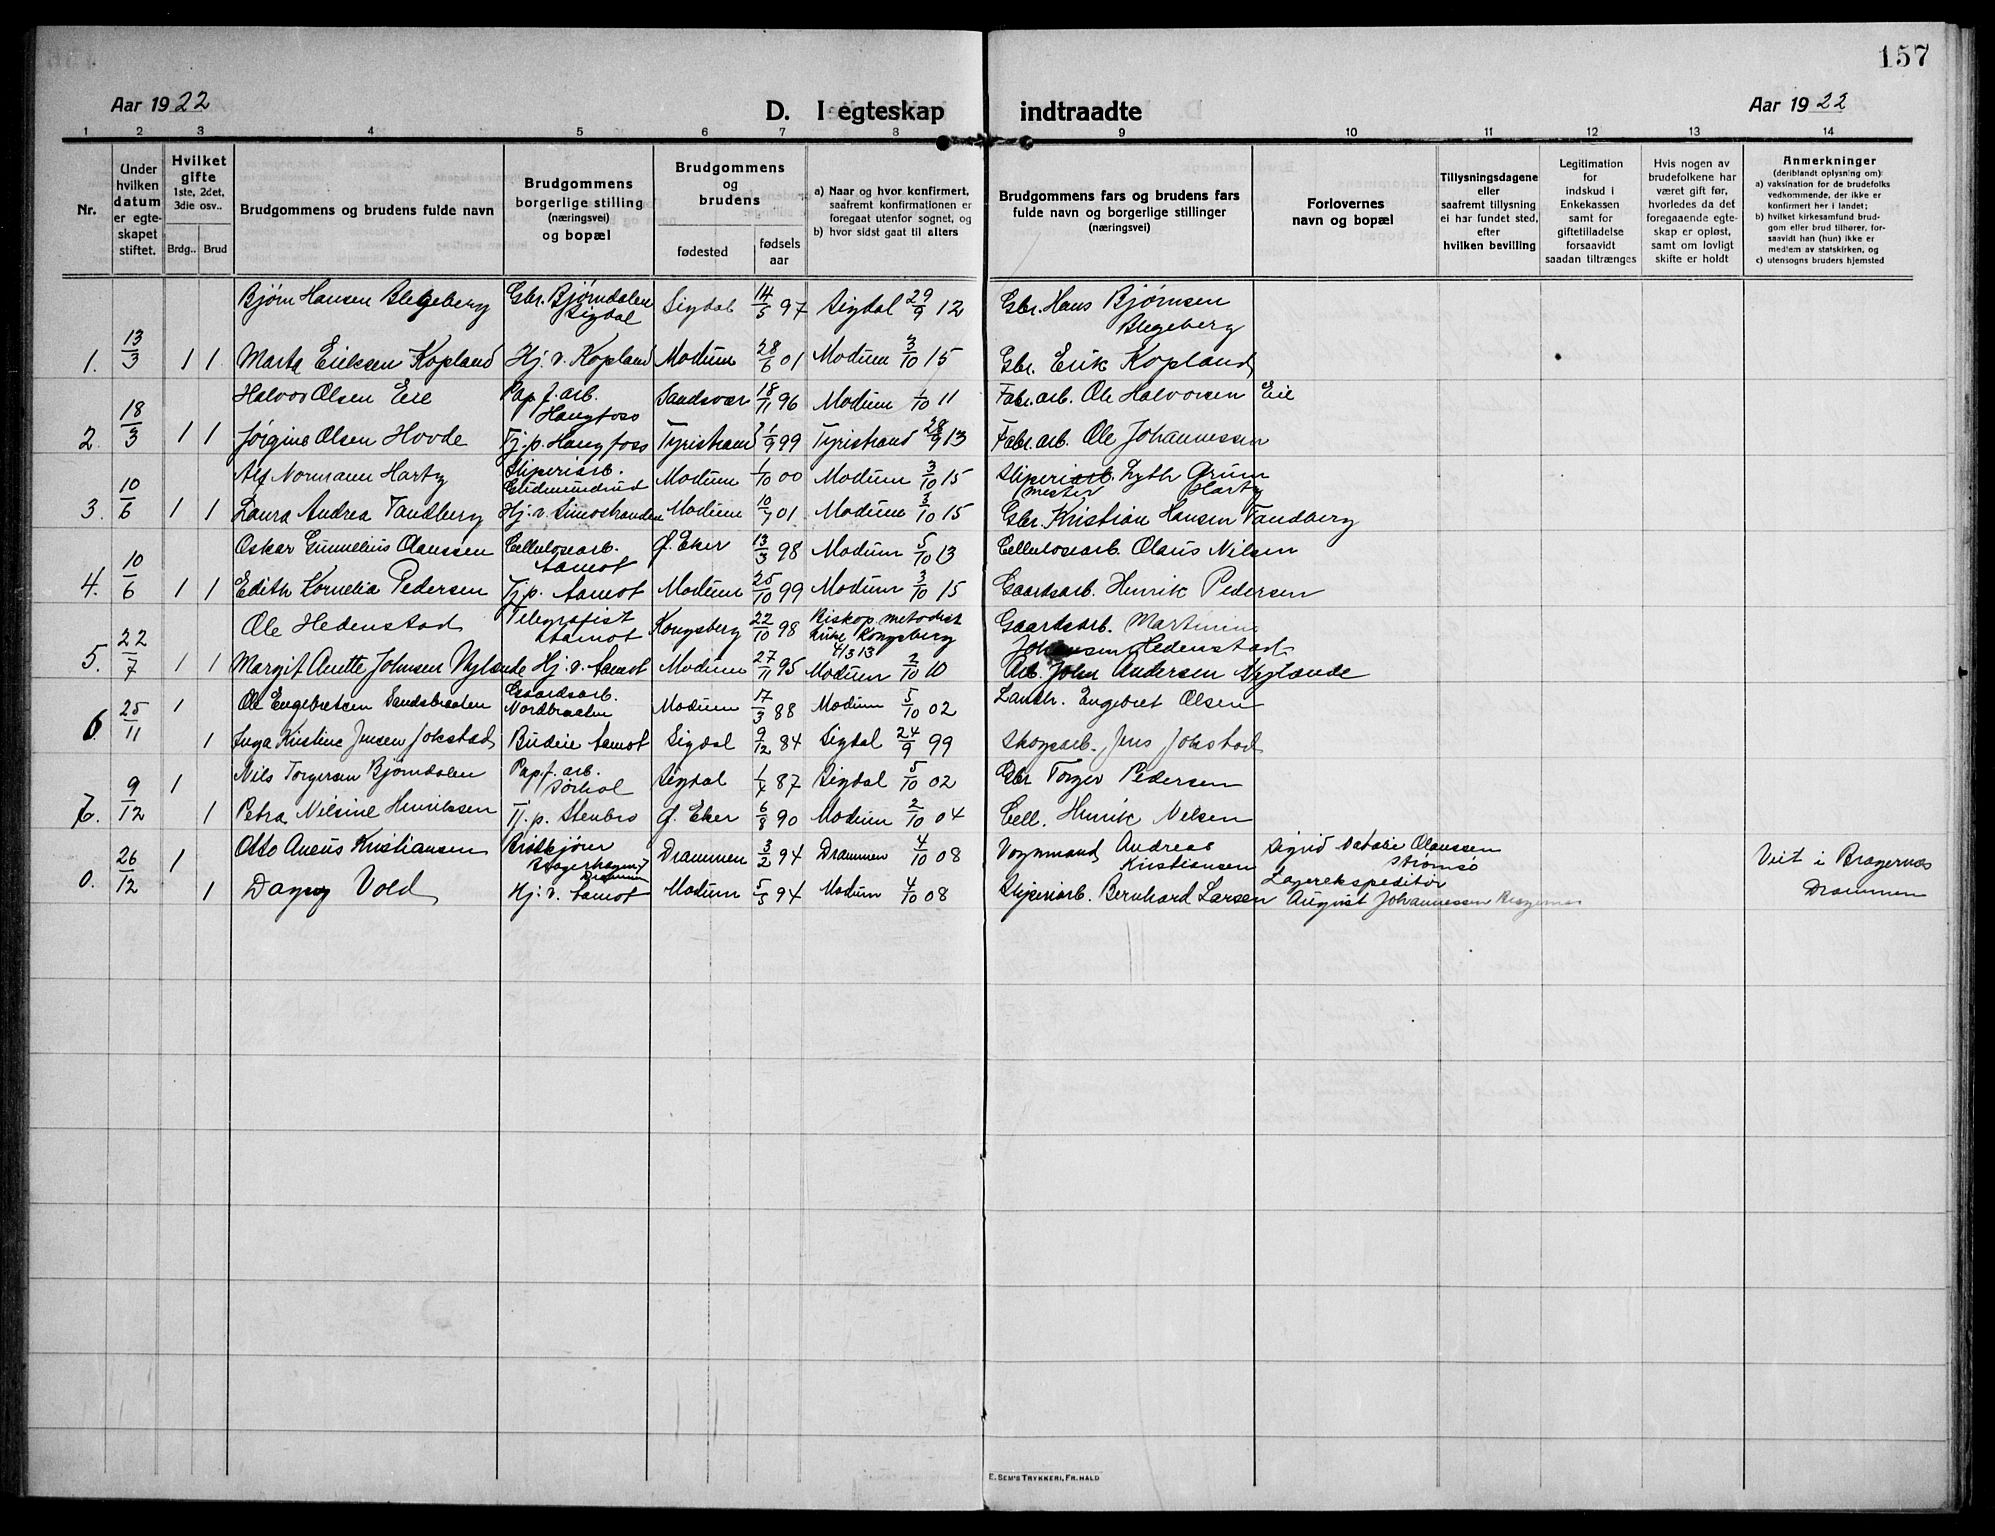 157
Aar 1922
D. I egteskap indtraadte
Aar 1922
1 2 3 4 5 6 7 8 9 10 11 12 13 14
Nr.
Under hvilken datum er egteskapet stiftet.
Hvilket gifte 1ste, 2det, 3die osv..
Brdg.. Brud
Brudgommens og brudens fulde navn
Brudgommens borgerlige stilling (næringsvei) og bopæl
Brudgommens og brudens
fødested
fødsels aar
a) Naar og hvor konfirmert, saafremt konfirmationen er foregaat utenfor sognet, og
b) hvor sidst gaat til alters
Brudgommens fars og brudens fars fulde navn og borgerlige stillinger (næringsvei)
Forlovernes navn og bopæl
Tillysningsdagene eller saafremt tillysning ei har fundet sted, efter hvilken bevilling
Legitimation for indskud i Enkekassen samt for giftetilladelse forsaavidt saadan tiltrænges
Hvis nogen av brudefolkene har været gift før, hvorledes da det foregaaende egteskap er opløst, samt om lovligt skifte er holdt
Anmerkninger (deriblandt oplysning om:
a) vaksination for de brudefolks vedkommende, der ikke er konfirmert her i landet;
b) hvilket kirkesamfund brudgom eller brud tilhører, forsaavidt han (hun) ikke er medlem av statskirken, og
c) utensogns bruders hjemsted
Bjørn Hansen Blegeberg Gbr. Bjørndalen Sigdal Sigdal 14/5 97 Sigdal 29/9 12 Gbr. Hans Bjørnsen Blegeberg
1. 13/3 1 1 Marta Eriksen Kopland Hj. v. Kopland Modum 28/6 01 Modum 3/10 15 Gbr. Erik Kopland
Halvor Olsen Eie Pap.f.arb. Haugfoss Sandsvær 18/11 96 Modum 1/10 11 Fabr.arb. Ole Halvorsen Eie
2. 18/3 1 1 Jørgine Olsen Hovde Tj. p. Haugfoss Tyristrand 21/9 99 Tyristrand 28/9 13 Fabr.arb. Ole Johannessen
Alf Normann Harty Sliperiarb. Gudmundrud Modum 1/10 00 Modum 3/10 15 Sliperiarb. mester Lyth Grüm Harty
3. 10/6 1 1 Laura Andrea Tandberg Hj. v. Simostranden Modum 10/7 01 Modum 3/10 15 Gbr. Kristian Hansen Tandberg
Oskar Gunnelius Olaussen Cellulosearb. Aamot Ø. Eker 13/3 98 Modum 5/10 13 Cellulosearb. Olaus Nilsen
4. 10/6 1 1 Edith Kornelia Pedersen Tj. p. Aamot Modum 25/10 99 Modum 3/10 15 Gaardsarb. Henrik Pedersen
Ole Hedenstad Telegrafist Aamot Kongsberg 22/10 98 Biskop. metodist kirke Kongsberg 4/3 13 Gaardsarb. Martinius Johansen Hedenstad
5. 22/7 1 1 Margit Anette Johnsen Nylænde Hj. v. Aamot Modum 27/11 95 Modum 2/10 10 Arb. John Andersen Nylænde
6. 25/11 1 Ole Engebretsen Sandsbraaten Gaardsarb. Nordbraaten Modum 17/3 88 Modum 5/10 02 Landh. Engebret Olsen
1 Inga Kristine Jensen Jokstad Budeie Aamot Sigdal 9/12 84 Sigdal 24/9 99 Skogsarb. Jens Jokstad
7. 9/12 1 Nils Torgersen Bjørndalen Pap.f. arb. Sørhol Sigdal 1/4 87 Sigdal 5/10 02 Gbr Torger Pedersen
1 Petra Nilsine Henriksen Tj. p. Stenbro Ø. Eker 6/8 90 Modum 2/10 04 Cell. Henrik Nilsen
0. 26/12 1 Otto Aneus Kristiansen Drammen Drammen 3/2 94 Drammen 4/10 08 Vognmand Andreas Kristiansen Sigrid Natalie Olaussen Strømsø Viet i Bragernæs Drammen
1 Dagny Vold Hj. v. Aamot Modum 5/5 94 Modum 4/10 08 Sliperiarb. Bernhard Larsen Lagerekspeditør August Johannessen Bragernæs
E. SEM'S TRYKKERI, FR.HALD